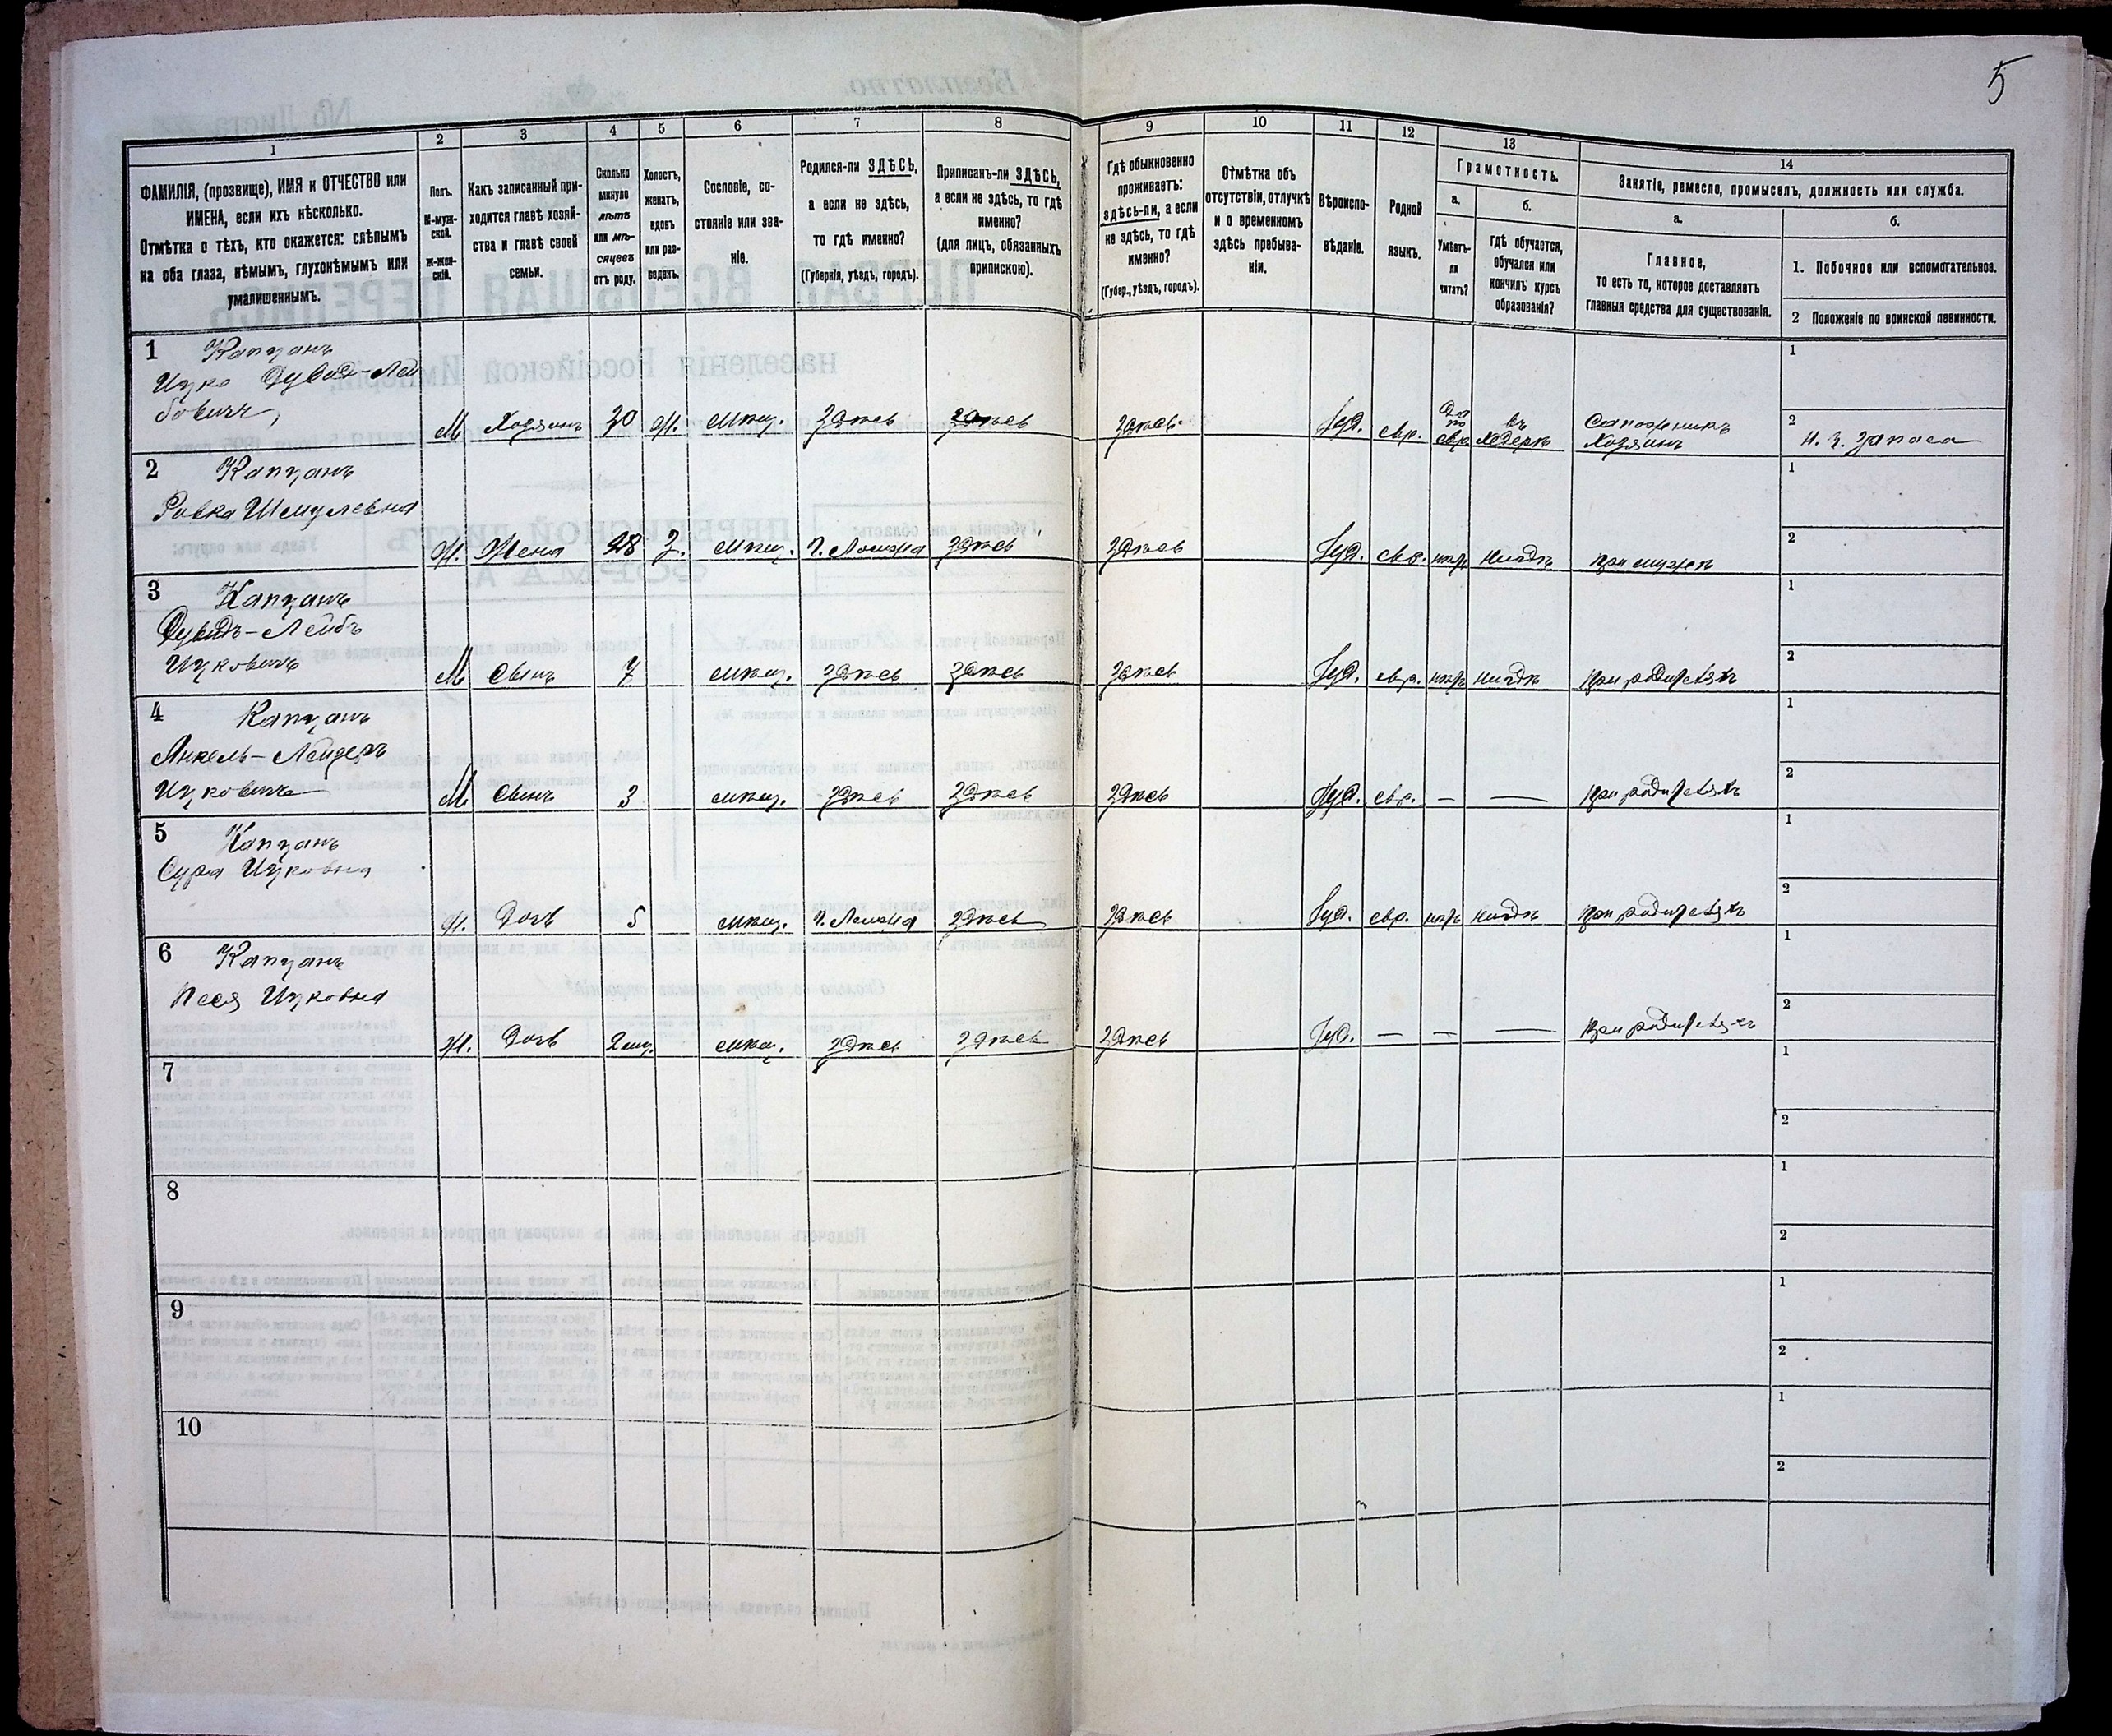 5
1
2
3
4
5
6
7
8
9
10
11
12
13
14
ФАМИЛІЯ, (прозвище), ИМЯ и ОТЧЕСТВО или
ИМЕНА, если ихъ нѣсколько.
Отмѣтка о тѣхъ, кто окажется: слѣпымъ
на оба глаза, нѣмымъ, глухонѣмымъ или
умалишеннымъ.
Полъ.
М-муж-
ской.
Ж-жен-
скій.
Какъ записанный при-
ходится главѣ хозяй-
ства и главѣ своей
семьи.
Сколько
минуло
лѣтъ
или мѣ-
сяцевъ
отъ роду.
Холостъ,
женатъ,
вдовъ
или раз-
веденъ.
Сословіе, со-
стояніе или зва-
ніе.
Родился-ли ЗДѢСЬ,
а если не здѣсь,
то гдѣ именно?
(Губернія, уѣздъ, городъ).
Приписанъ-ли ЗДѢСЬ,
а если не здѣсь, то гдѣ
именно?
(для лицъ, обязанныхъ
припискою).
Гдѣ обыкновенно
проживаетъ:
здѣсь-ли, а если
не здѣсь, то гдѣ
именно?
(Губер., уѣздъ, городъ).
Отмѣтка объ
отсутствіи, отлучкѣ
и о временномъ
здѣсь пребыва-
ніи.
Вѣроиспо-
вѣданіе.
Родной
языкъ.
Грамотность.
а.
Умѣетъ-
ли
читать?
б.
Гдѣ обучается,
обучался или
кончилъ курсъ
образованія?
Занятіе, ремесло, промыселъ, должность или служба.
а.
Главное,
то есть то, которое доставляетъ
главныя средства для существованія.
б.
1. Побочное или вспомогательное.
2 Положеніе по воинской повинности.
1 Капцанъ
Ицко Дувид-Лей
бовичъ, М Хозяинъ 30 Ж. мѣщ. здѣсь здѣсь здѣсь Іуд. евр. да по евр въ хедерѣ Сапожникъ Хозяинъ
1
2 Н. ч. запаса
2 Капцанъ
Ривка Шмулевна
Ж. Жена 28 З. мѣщ. здѣсь здѣсь Іуд. евр. нѣтъ нигдѣ при мужѣ
1
2
3 Капцанъ
Дувидъ-Лейбъ
Ицковичъ М Сынъ 7 мѣщ. здѣсь здѣсь здѣсь Іуд. евр. нѣтъ нигдѣ при родителяхъ
1
2
4 Капцанъ
Янкель-Лейзеръ
Ицковичъ М Сынъ 3 мѣщ. здѣсь здѣсь здѣсь Іуд. евр. — — при родителяхъ
1
2
5 Капцанъ
Сура Ицковна
Ж. Дочь 5 мѣщ. здѣсь здѣсь Іуд. евр. нѣтъ нигдѣ при родителяхъ
1
2
6 Капцанъ
Песя Ицковна
Ж. Дочь 2 мѣц. мѣщ. здѣсь здѣсь здѣсь Іуд. — — — при родителяхъ
1
2
7
1
2
8
1
2
9
1
2
10
1
2